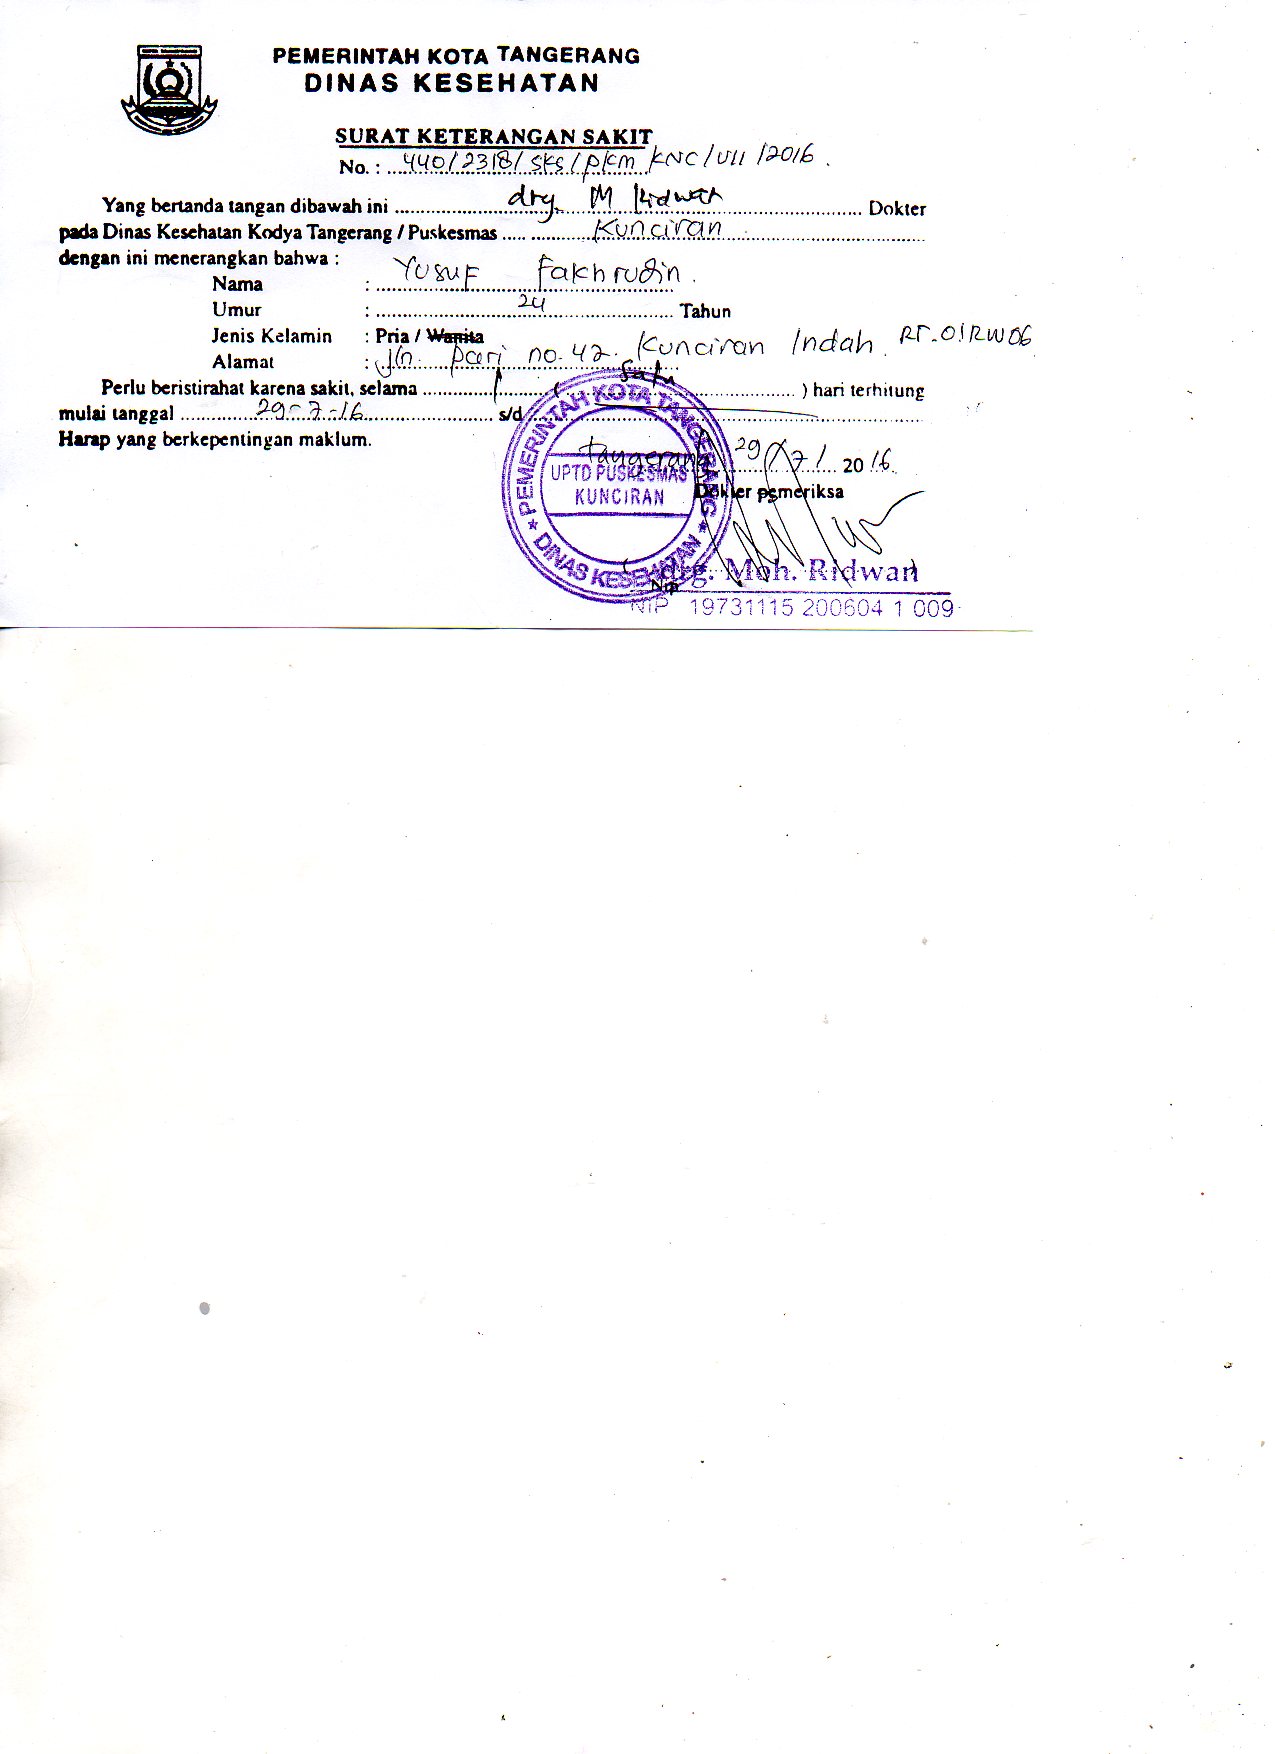 PEMERINTAH KOTA TANGERANG
DINAS KESEHATAN
SURAT KETERANGAN SAKIT
No. : 440/2318/sks/pkm knc/VII/2016.
Yang bertanda tangan dibawah ini drg. M Ridwan Dokter
pada Dinas Kesehatan Kodya Tangerang / Puskesmas Kunciran
dengan ini menerangkan bahwa :
Nama : Yusuf Fakhrudin.
Umur : 24 Tahun
Jenis Kelamin : Pria / Wanita
Alamat : Jln. pari no. 42. Kunciran Indah. RT.01RW06
Perlu beristirahat karena sakit, selama 1 ( satu ) hari terhitung
mulai tanggal 29-7-16 s/d
Harap yang berkepentingan maklum.
Tangerang 29/7/ 2016.
Dokter pemeriksa
PEMERINTAH KOTA TANGERANG
UPTD PUSKESMAS
KUNCIRAN
★ DINAS KESEHATAN ★
( drg. Moh. Ridwan )
Nip
NIP 19731115 200604 1 009